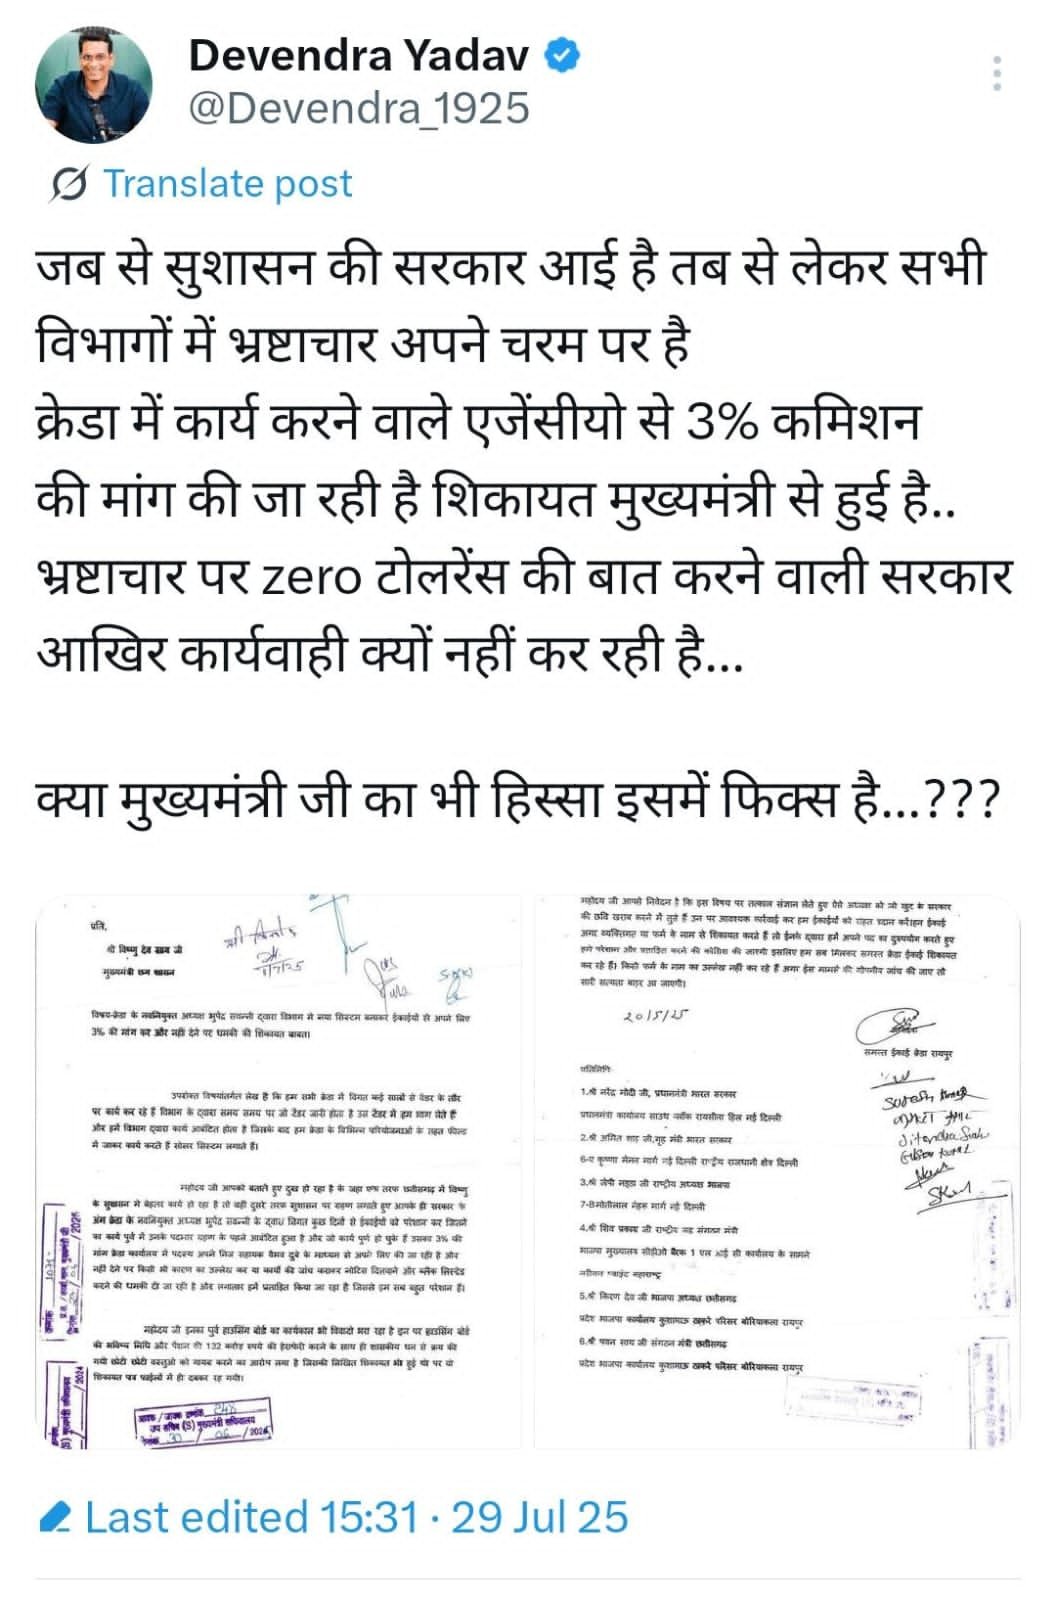 Devendra Yadav
@Devendra_1925
Translate post
जब से सुशासन की सरकार आई है तब से लेकर सभी
विभागों में भ्रष्टाचार अपने चरम पर है
क्रेडा में कार्य करने वाले एजेंसीयो से 3% कमिशन
की मांग की जा रही है शिकायत मुख्यमंत्री से हुई है..
भ्रष्टाचार पर zero टोलरेंस की बात करने वाली सरकार
आखिर कार्यवाही क्यों नहीं कर रही है...
क्या मुख्यमंत्री जी का भी हिस्सा इसमें फिक्स है...???
प्रति,
श्री विष्णु देव साय जी
मुख्यमंत्री छग शासन
विषय-क्रेडा के नवनियुक्त अध्यक्ष भुपेंद्र सवन्नी द्वारा विभाग में नया सिस्टम बनाकर ईकाईयों से अपने लिए
3% की मांग कर और नहीं देने पर धमकी की शिकायत बाबत।
उपरोक्त विषयांतर्गत लेख है कि हम सभी क्रेडा में विगत कई सालों से वेंडर के तौर
पर कार्य कर रहे हैं विभाग के द्वारा समय समय पर जो टेंडर जारी होता है उस टेंडर में हम भाग लेते हैं
और हमें विभाग द्वारा कार्य आबंटित होता है जिसके बाद हम क्रेडा के विभिन्न परियोजनाओं के तहत फील्ड
में जाकर कार्य करते हैं सोलर सिस्टम लगाते हैं।
महोदय जी आपको बताते हुए दुख हो रहा है के जहा एक तरफ छत्तीसगढ़ में विष्णु
के सुशासन में बेहतर कार्य हो रहा है तो वही दुसरे तरफ सुशासन पर ग्रहण लगाते हुए आपके ही सरकार के
अंग क्रेडा के नवनियुक्त अध्यक्ष भुपेंद्र सवन्नी के द्वारा विगत कुछ दिनों से ईकाईयों को परेशान कर जितने
का कार्य पुर्व में उनके पदभार ग्रहण के पहले आबंटित हुआ है और जो कार्य पुर्ण हो चुके हैं उसका 3% की
मांग क्रेडा कार्यालय में पदस्थ अपने निज सहायक वैभव दुबे के माध्यम से अपने लिए की जा रही है और
नहीं देने पर किसी भी कारण का उल्लेख कर या कार्यो की जांच कराकर नोटिस दिलवाने और ब्लैक लिस्टेड
करने की धमकी दी जा रही है और लगातार हमें प्रताड़ित किया जा रहा है जिससे हम सब बहुत परेशान हैं।
महोदय जी इनका पुर्व हाउसिंग बोर्ड का कार्यकाल भी विवादो भरा रहा है इन पर हाउसिंग बोर्ड
की भविष्य निधि और पेंशन की 132 करोड़ रुपये की हेराफेरी करने के साथ ही शासकीय धन से क्रय की
गयी छोटी छोटी वस्तुओ को गायब करने का आरोप लगा है जिसकी लिखित शिकायत भी हुई थी पर वो
शिकायत पत्र फाईलों में ही दबकर रह गयी।
महोदय जी आपसे निवेदन है कि इस विषय पर तत्काल संज्ञान लेते हुए ऐसे अध्यक्ष को जो खुद के सरकार
की छवि खराब करने में तुले हैं उन पर आवश्यक कार्रवाई कर हम ईकाईयों को राहत प्रदान करें।हम ईकाई
अगर व्यक्तिगत या फर्म के नाम से शिकायत करते हैं तो ईनके द्वारा हमें अपने पद का दुरुपयोग करते हुए
हमे परेशान और प्रताड़ित करने की कोशिश की जाएगी इसलिए हम सब मिलकर समस्त क्रेडा ईकाई शिकायत
कर रहे हैं। किसी फर्म के नाम का उल्लेख नहीं कर रहे हैं अगर ईस मामले की गोपनीय जांच की जाए तो
सारी सत्यता बाहर आ जाएगी।
20/5/25
समस्त ईकाई क्रेडा रायपुर
प्रतिलिपि-
1.श्री नरेंद्र मोदी जी, प्रधानमंत्री भारत सरकार
प्रधानमंत्री कार्यालय साउथ ब्लॉक रायसीना हिल नई दिल्ली
2.श्री अमित शाह जी,गृह मंत्री भारत सरकार
6-ए कृष्णा मेनन मार्ग नई दिल्ली राष्ट्रीय राजधानी क्षेत्र दिल्ली
3.श्री जेपी नड्डा जी राष्ट्रीय अध्यक्ष भाजपा
7-Bमोतीलाल नेहरू मार्ग नई दिल्ली
4.श्री शिव प्रकाश जी राष्ट्रीय सह संगठन मंत्री
भाजपा मुख्यालय सीडीओ बैरक 1 एल आई सी कार्यालय के सामने
नरीमन प्वाइंट महाराष्ट्र
5.श्री किरण देव जी भाजपा अध्यक्ष छत्तीसगढ़
प्रदेश भाजपा कार्यालय कुशाभाऊ ठाकरे परिसर बोरियाकला रायपुर
6.श्री पवन साय जी संगठन मंत्री छत्तीसगढ़
प्रदेश भाजपा कार्यालय कुशाभाऊ ठाकरे परिसर बोरियाकला रायपुर
Last edited 15:31 · 29 Jul 25